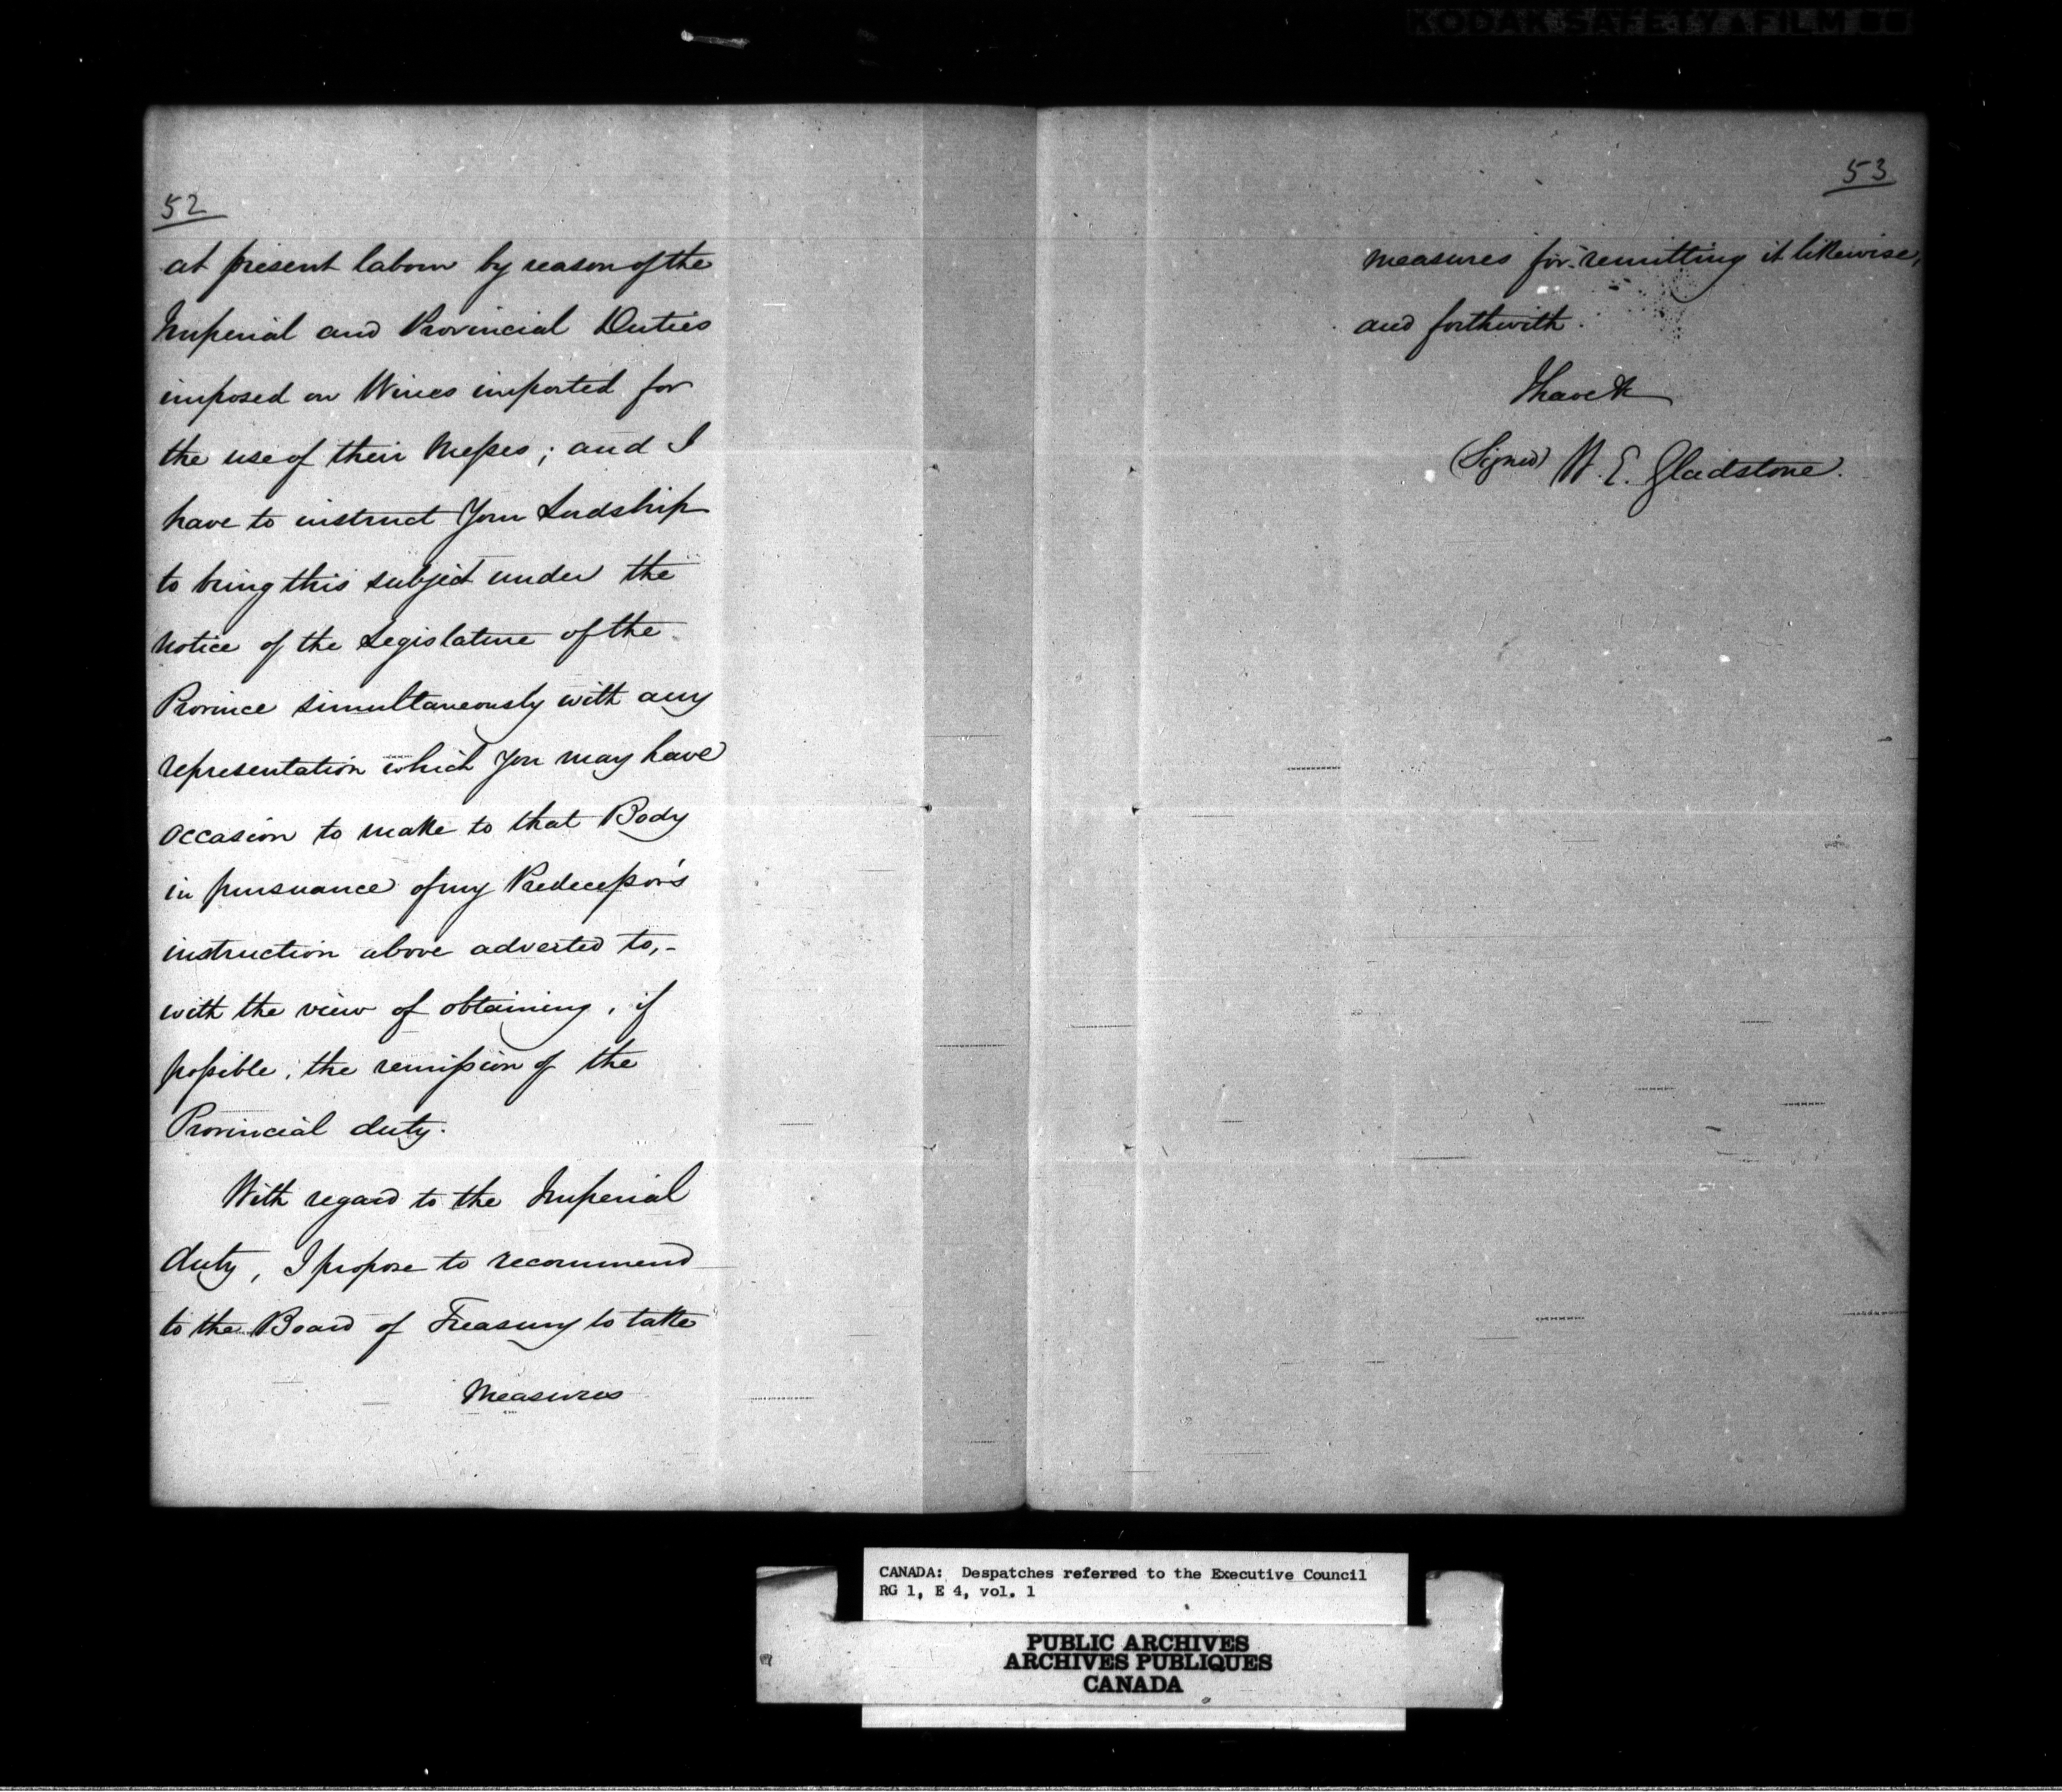 KODAK SAFETY FILM
52
at present labour by reason of the
Imperial and Provincial Duties
imposed on Wines imported for
the use of their Messes; and I
have to instruct Your Lordship
to bring this subject under the
notice of the Legislature of the
Province simultaneously with any
representation which you may have
occasion to make to that Body
in pursuance of my Predecessor's
instruction above adverted to,-
with the view of obtaining, if
possible, the remission of the
Provincial duty.
With regard to the Imperial
duty, I propose to recommend
to the Board of Treasury to take
measures
53
measures for remitting it likewise,
and forthwith.
I have &c
(Signed) W. E. Gladstone.
CANADA: Despatches referred to the Executive Council
RG 1, E 4, vol. 1
PUBLIC ARCHIVES
ARCHIVES PUBLIQUES
CANADA